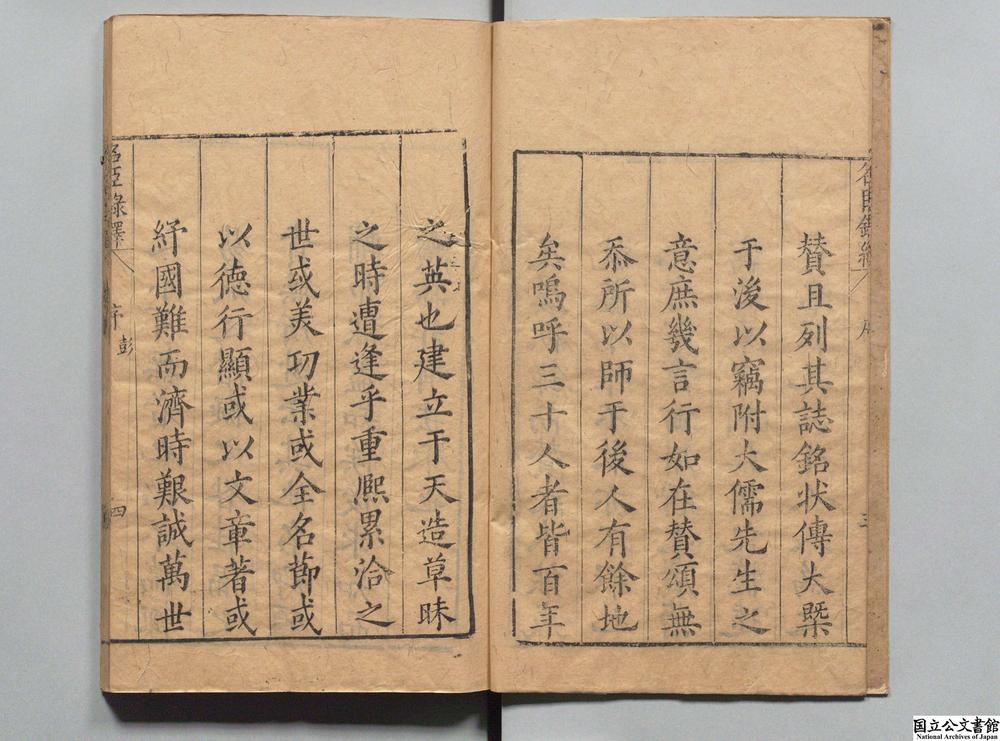 賛且列其誌銘状傳大槩
于後以竊附大儒先生之
意庶幾言行如在賛頌無
忝所以師于後人有餘地
矣嗚呼三十人者皆百年
之英也建立于天造草昧
之時遭逢乎重熈累洽之
世或美功業或全名節或
以德行顯或以文章著或
紓國難而濟時艱誠萬世
名臣録
序
彭
四
国立公文書館
National Archives of Japan